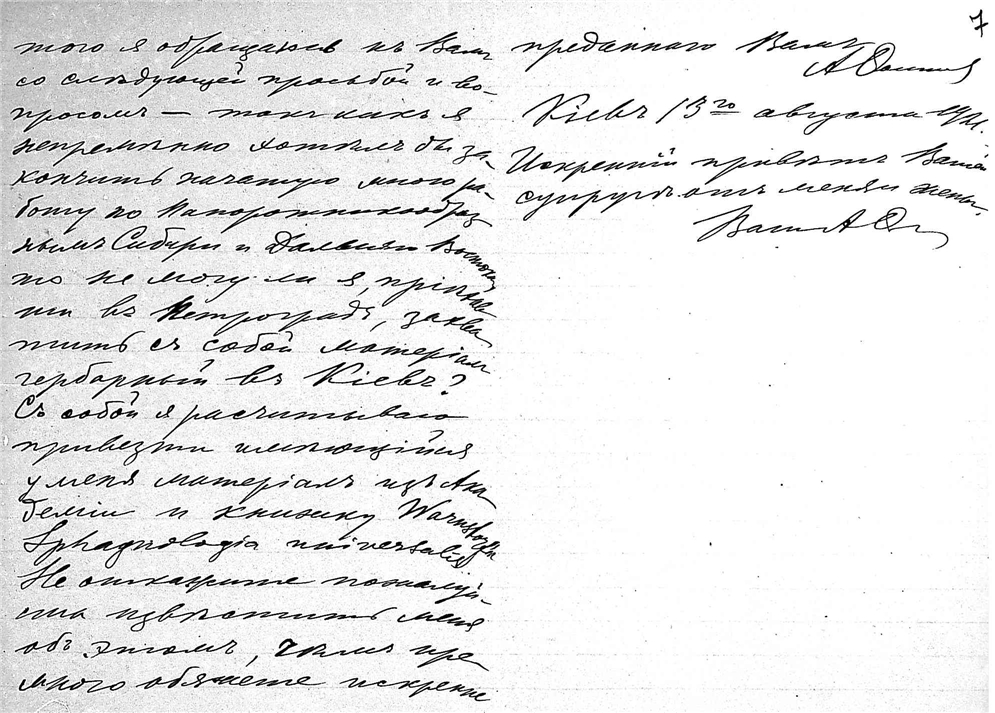 7
того я обращаюсь къ Вамъ
со слѣдующей просьбой и во-
просомъ — такъ какъ я
непремѣнно хотѣлъ бы за-
кончить начатую мною ра-
боту по Папоротникообраз
нымъ Сибири и Дальняго Востока
то не могу ли я, пріѣхав
ши въ Петроградъ, захва
тить съ собой матеріалъ
гербарный въ Кіевъ?
Съ собой я расчитываю
привезти имѣющійся
у меня матеріалъ изъ Ака
деміи и книжку Warnstorf'а
Sphagnologia universalis
Не откажите пожалуй-
ста извѣстить меня
объ этомъ, чѣмъ пре
много обяжете искренне
преданнаго Вамъ
А Фомина
Кіевъ 13го августа
Искренній привѣтъ Вашей
супругѣ отъ меня и жены.
Вашъ А Ф